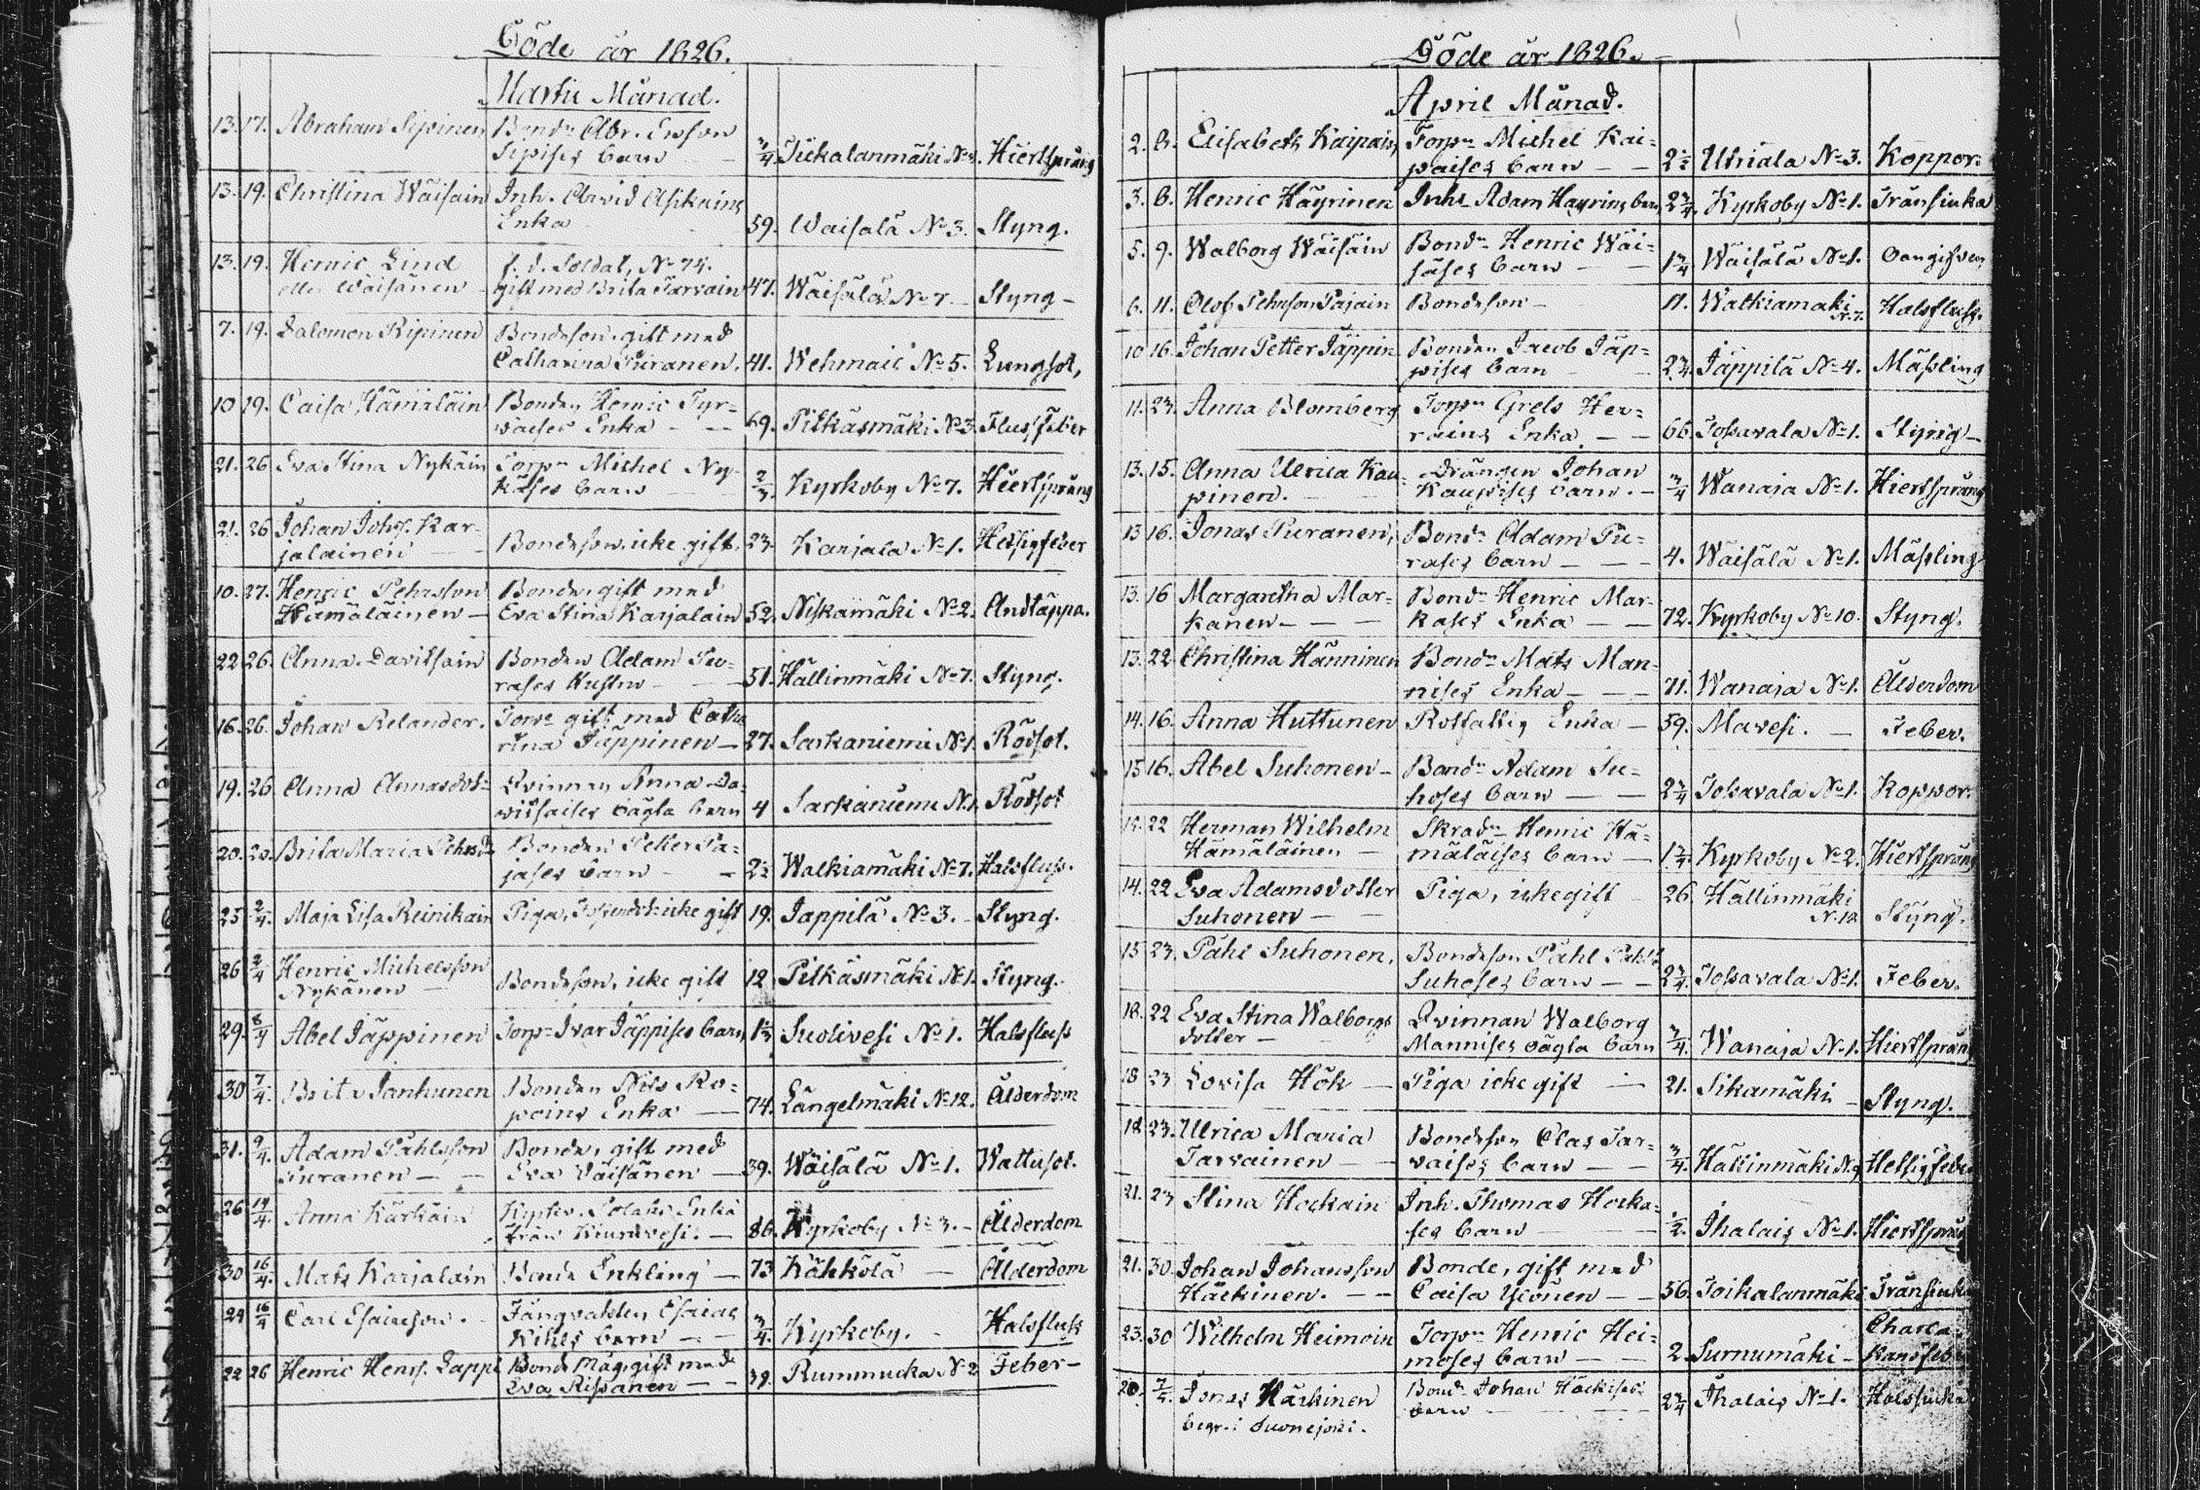 Döde år 1826.
Martii Månad.
13. 17. Abraham Sipinen Bondn Abr. Ersson
Sipises barn — 3/4 Toikalanmäki Hiertsprång
13. 19. Christina Wäisäin Inh. Arvid Asikains
Enka 59. Waisalä No 3. Styng.
13. 19. Henric Lind f. d. Soldat, No 74.
eller Wäisänen gift med Brita Tarvain 47. Wäisälä No 7. Styng —
7. 19. Salomon Ripinen Bondeson, gift med
Catharina Puranen. 41. Wehmais No 5. Lungsot,
10 19. Caisa Hämäläin Bonden Henric Tyr-
väises Enka — 69. Pitkäsmäki No 3 Flussfeber
21. 26 Eva Stina Nykäin Torpn Michel Ny-
käses barn 2/3. Kyrkoby No 7. Hiertsprång
21. 26 Johan Johss. Kar-
jalainen — Bondeson, icke gift. 23. Karjala No 1. Hetsigfeber
10. 27. Henric Pehrsson Bonde, gift med
Hämäläinen — Eva Stina Karjalain 52. Niskamäki No 2. Andtäppa.
22 26. Anna Davitsain Bonden Adam Pu-
rases Hustru — 51. Hällinmäki No 7. Styng.
16. 26. Johan Relander. Torpn gift med Catha
rina Jäppinen — 27. Sarkaniemi No 1. Rödsot.
19. 26. Anna Annasdotr Qvinnan Anna Da-
vitsaises oägta barn 4 Sarkaniemi No 1. Rödsot
20. 20. Brita Maria Pehrsdr Bonden Petter Pa-
jases barn — 2 1/2 Walkiamäki No 7. Halsfluss.
25 2/4. Maja Lisa Reinikain Piga, icke gift 19. Jappilä No 3. Styng.
26 2/4 Henric Michelsson
Nykänen — Bondeson, icke gift 12 Pitkäsmäki No 1. Styng.
29. 8/4 Abel Jäppinen Torpn Ivar Jäppises barn 1 1/2 Suotivesi No 1. Halsfluss
30 7/4. Brita Janhunen Bonden Nils Ro-
poins Enka — 74. Längelmäki No 12. Ålderdom
31. 9/4. Adam Påhlsson Bonde, gift med
Puranen — Eva Väisänen — 39. Wäisälä No 1. Wattusot.
26 14/4. Anna Kärkäin Enka
från Kiuruvesi. — 86. Kyrkoby No 3. — Ålderdom
30 16/4. Mats Karjalain Bonde Enkling — 73 Kähkölä — Ålderdom
24 16/4 Carl Esaiesson. Fångvakten Esaias
barn — 3/4. Kyrkoby. Halsfluss
22 26 Henric Henss. Jappi Bonde Måg, gift med
Eva Rissanen — 39. Rummucka No 2 Feber —
Döde år 1826. —
April Månad.
2. 8. Elisabeth Kaipain, Torpn Michel Kai-
paises barn — 2 1/2 Utriala No 3. Koppor.
3. 6. Henric Häyrinen Inhs Adam Hayrins barn, 2 3/4. Kyrkoby No 1. Tränsiuka
5. 9. Walborg Wäisäin Bondn Henric Wäi-
säses barn — 1 3/4 Wäisälä No 1. Oangifven
6. 11. Olof Pehrsson Pajain Bondeson — 17. Walkiamaki No 7. Halsfluss.
10 16. Johan Petter Jäppin Bonden Jacob Jäp-
pises barn 2 3/4. Jäppilä No 4. Mässling
11. 23. Anna Blomberg Torpn Grels Her-
rains Enka. — 66. Joisavala No 1. Styng —
13. 15. Anna Ulrica Kau- Drängen Johan
pinen. — Kaupises barn. — 3/4 Wanaja No 1. Hiertsprång
13 16. Jonas Puranen, Bondn Adam Pu-
rases barn — 4. Wäisälä No 1. Mässling
13. 16 Margaretha Mar- Bondn Henric Mar-
kanen — kases Enka — 72. Kyrkoby No 10. Styng.
13. 22 Christina Hänninen Bondn Mats Man-
nises Enka — 71. Wanaja No 1. Ålderdom
14. 16. Anna Huttunen Rotfattig Enka — 59. Mavesi. — Feber.
15 16. Abel Suhonen — Bondn Adam Su-
hoses barn — 2 3/4 Joisavala No 1. Koppor.
22 Herman Wilhelm Skradn Henric Hä-
Hämäläinen — mäläises barn — 1 3/4. Kyrkoby No 2. Hiertsprång
14. 22 Eva Adamsdotter Piga, icke gift 26. Hällinmäki
Suhonen — No 12 Styng.
15 23. Påhl Suhonen, Bondeson Påhl
Suhoses barn — 2 3/4. Joisavala No 1. Feber.
18. 22 Eva Stina Walborgs Qvinnan Walborg
dotter — Mannises oägta barn 3/4. Wanaja No 1. Hiertsprång
18 23 Lovisa Hök — Piga icke gift — 21. Sikamäki — Styng.
18 23. Ulrica Maria Bondeson Clas Tar-
Tarvainen — vaises barn — 3/4. Hällinmäki Hetsigfeber
21. 23 Stina Hockain Inh. Thomas Hocka-
ses barn 1/2. Ihalais No 1. Hiertsprång
21. 30. Johan Johansson Bonde, gift med
Häckinen. — Caisa Ylönen — 56. Toikalanmäki Tränsiuka
23. 30 Wilhelm Heimoin Torpn Henric Hei-
moses barn — 2. Surnumäki —
20. 7/4. Jonas Häckinen Bondn Johan Häckises
barn 2 3/4 Ihalais No 1. Halssiuka
begr. i Suonejoki.